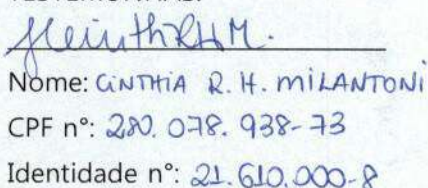 TESTEMUNHAS:
Nome: CiNTHiA R. H. MiLANTONi
CPF n°: 280.078.938-73
Identidade n°: 21.610.000-8